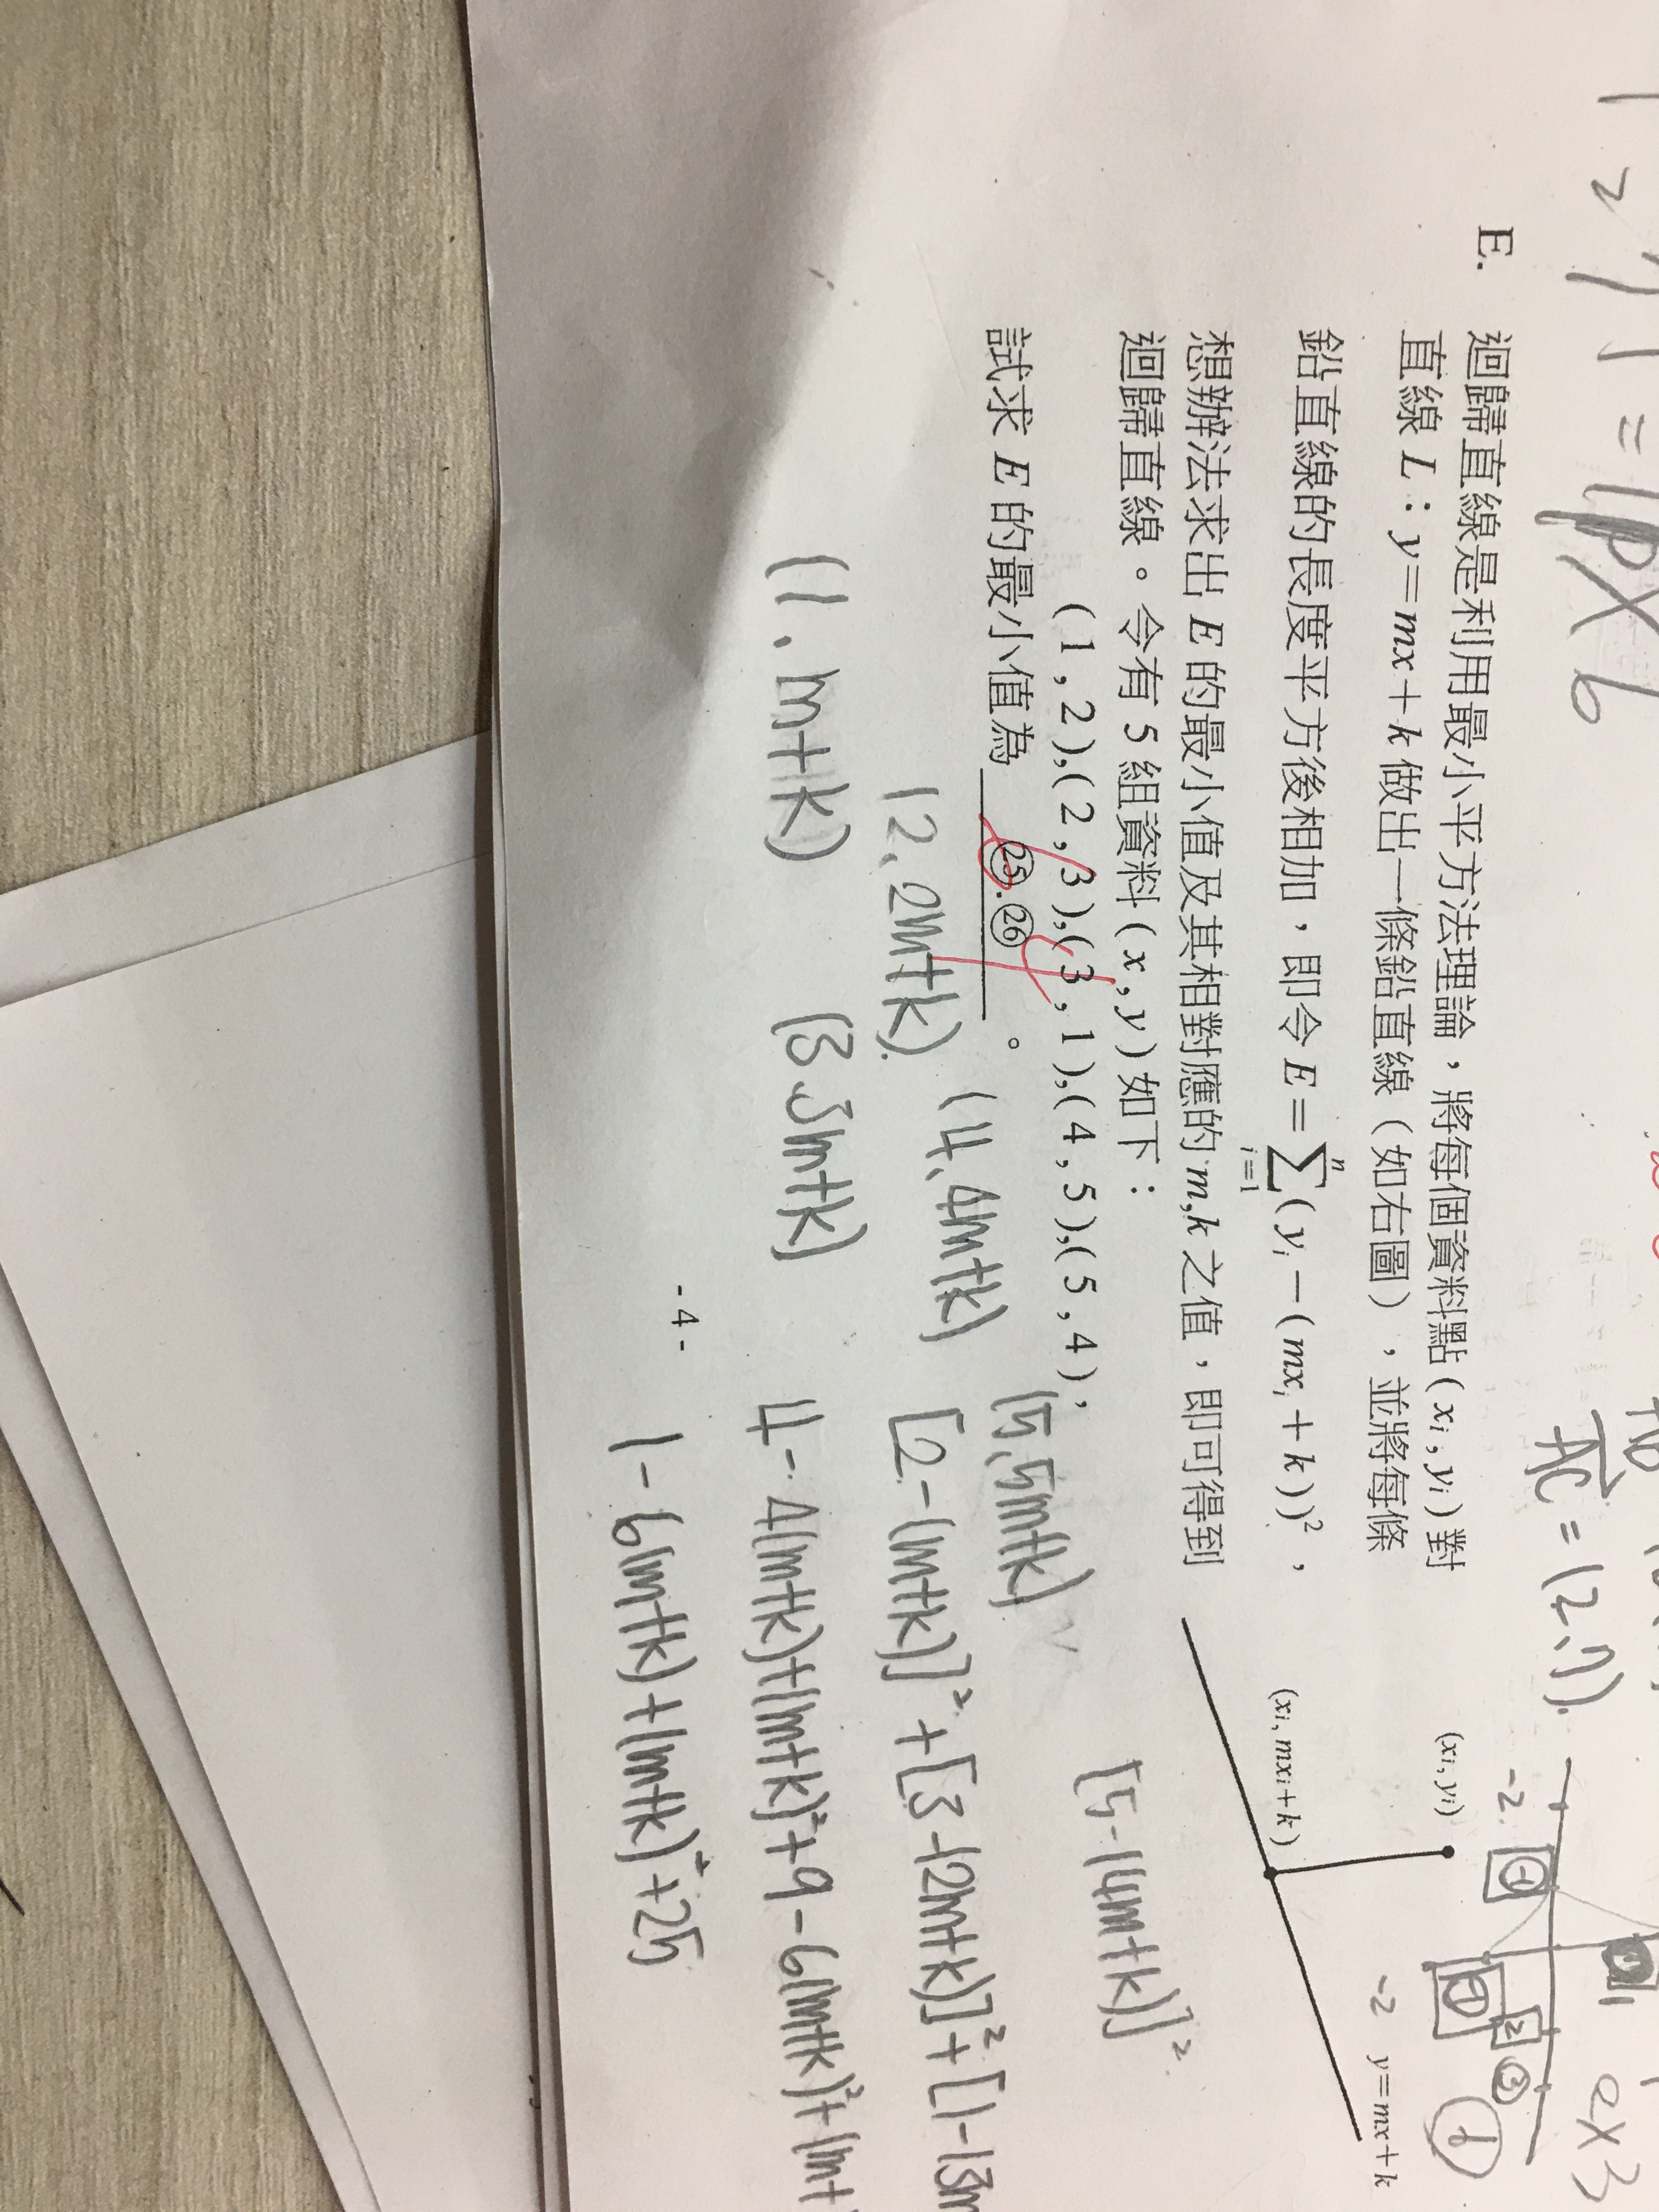 E. 迴歸直線是利用最小平方法理論，將每個資料點(xᵢ, yᵢ)對
直線 L：y=mx+k 做出一條鉛直線（如右圖），並將每條
鉛直線的長度平方後相加，即令 E=∑ⁿᵢ₌₁(yᵢ−(mxᵢ+k))²，
想辦法求出 E 的最小值及其相對應的 m,k 之值，即可得到
迴歸直線。令有 5 組資料(x, y)如下：
(1,2),(2,3),(3,1),(4,5),(5,4),
試求 E 的最小值為 ㉕.㉖ 。
(xᵢ, yᵢ)
(xᵢ, mxᵢ+k)
y=mx+k
AC = (2,7)
-2
-2
(1, m+k)
(2, 2m+k)
(3, 3m+k)
(4, 4m+k)
(5, 5m+k)
[5-(4m+k)]²
[2-(m+k)]²+[3-(2m+k)]²+[1-(3m
4-4(m+k)+(m+k)²+9-6(m+k)²+(m+
1-6(m+k)+(m+k)²+25
- 4 -